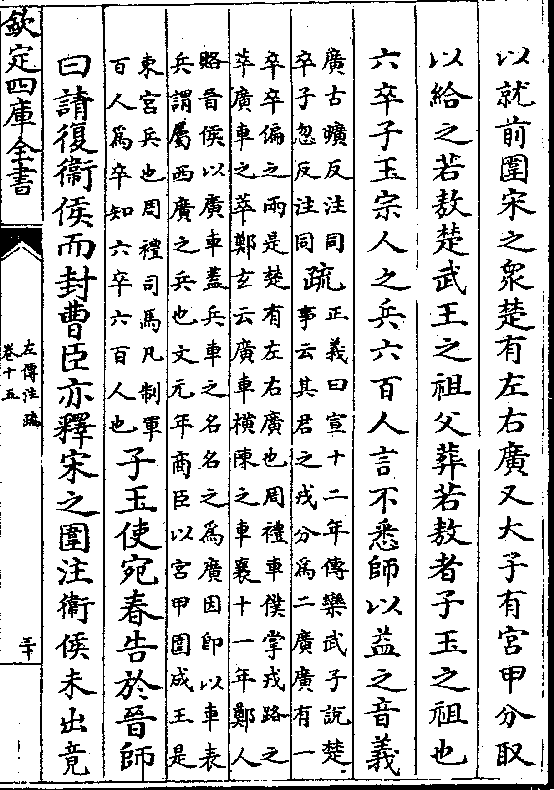 以就前圍宋之衆楚有左右廣又大子有宮甲分取
以給之若敖楚武王之祖父葬若敖者子玉之祖也
六卒子玉宗人之兵六百人言不悉師以益之音義
廣古曠反注同
卒子忽反注同
疏
正義曰宣十二年傳欒武子說楚
事云其君之戎分爲二廣廣有一
卒卒偏之兩是楚有左右廣也周禮車僕掌戎路之
萃廣車之萃鄭玄云廣車橫陳之車襄十一年鄭人
賂晉侯以廣車蓋兵車之名名之爲廣因即以車表
兵謂屬西廣之兵也文元年商臣以宮甲圍成王是
東宮兵也周禮司馬凡制軍
百人爲卒知六卒六百人也
子玉使宛春告於晉師
曰請復衞侯而封曹臣亦釋宋之圍注衞侯未出竟
欽定四庫全書
左傳注疏
卷十五